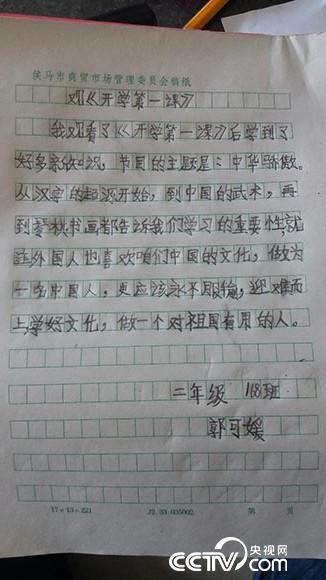 侯马市商贸市场管理委员会稿纸
观《开学第一课》
我观看了《开学第一课》后学到了
好多知识，节目的主题是：中华骄傲。
从汉字的起源开始，到中国的武术，再
到琴棋书画都告诉我们学习的重要性就
连外国人也喜欢咱们中国的文化，做为
一名中国人，更应该永不服输，迎难而
上学好文化，做一个对祖国有用的人。
二年级 168班
郭可媛
17×13=221 J2.33.035002 第 页
CCTV.com 央视网